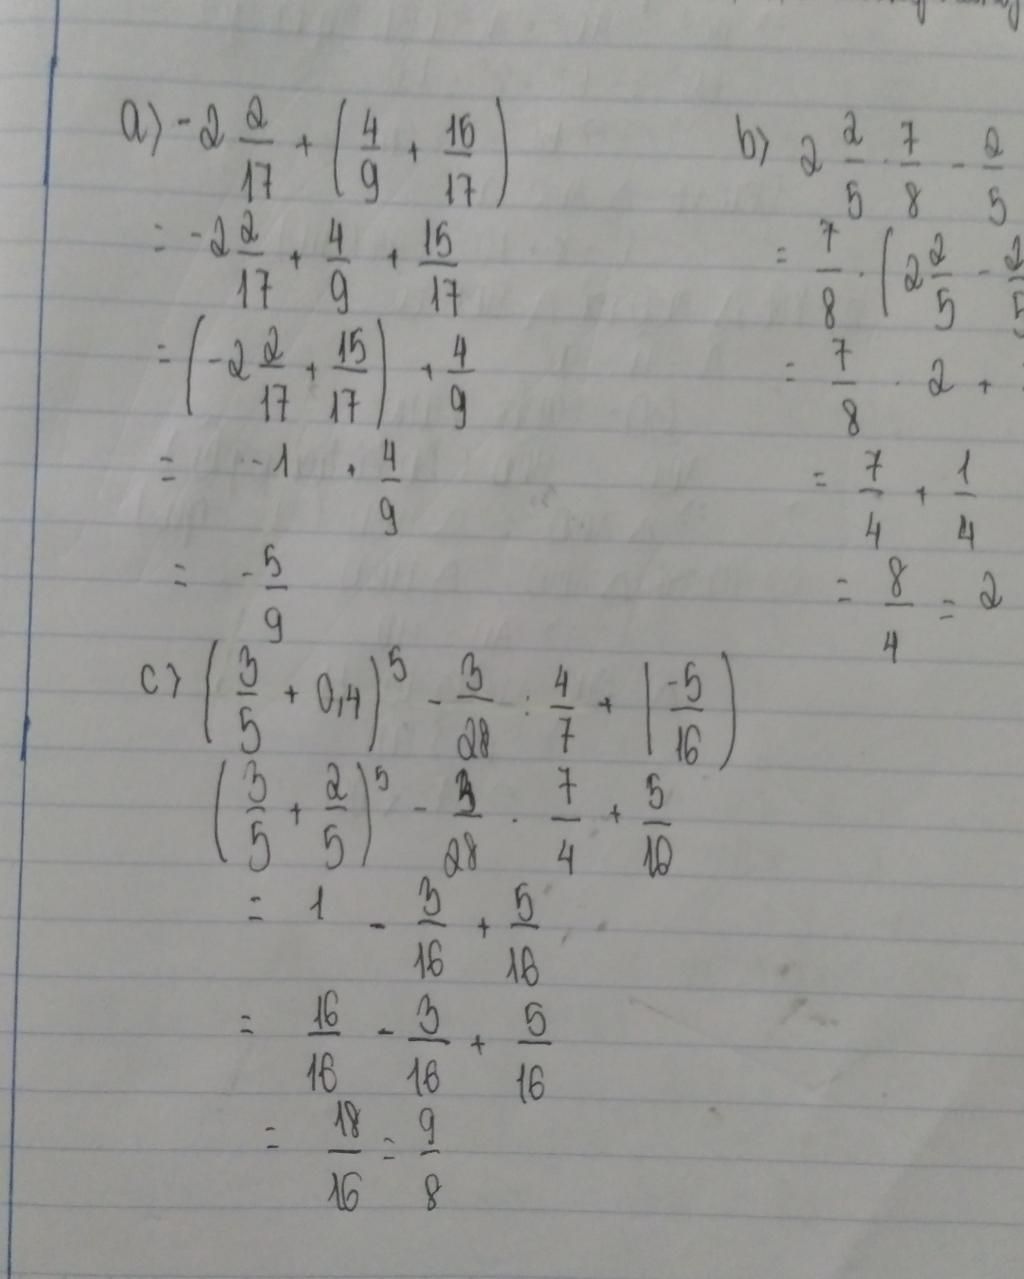 a) -2 2/17 + (4/9 + 15/17)
= -2 2/17 + 4/9 + 15/17
= (-2 2/17 + 15/17) + 4/9
= -1 + 4/9
= -5/9
b) 2 2/5 . 7/8 - 2/5
= 7/8 . (2 2/5 - 2/5
= 7/8 . 2 +
= 7/4 + 1/4
= 8/4 = 2
c) (3/5 + 0,4)^5 - 3/28 : 4/7 + |-5/16)
(3/5 + 2/5)^5 - 3/28 . 7/4 + 5/16
= 1 - 3/16 + 5/16
= 16/16 - 3/16 + 5/16
= 18/16 = 9/8